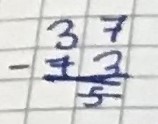 37
- 72
5